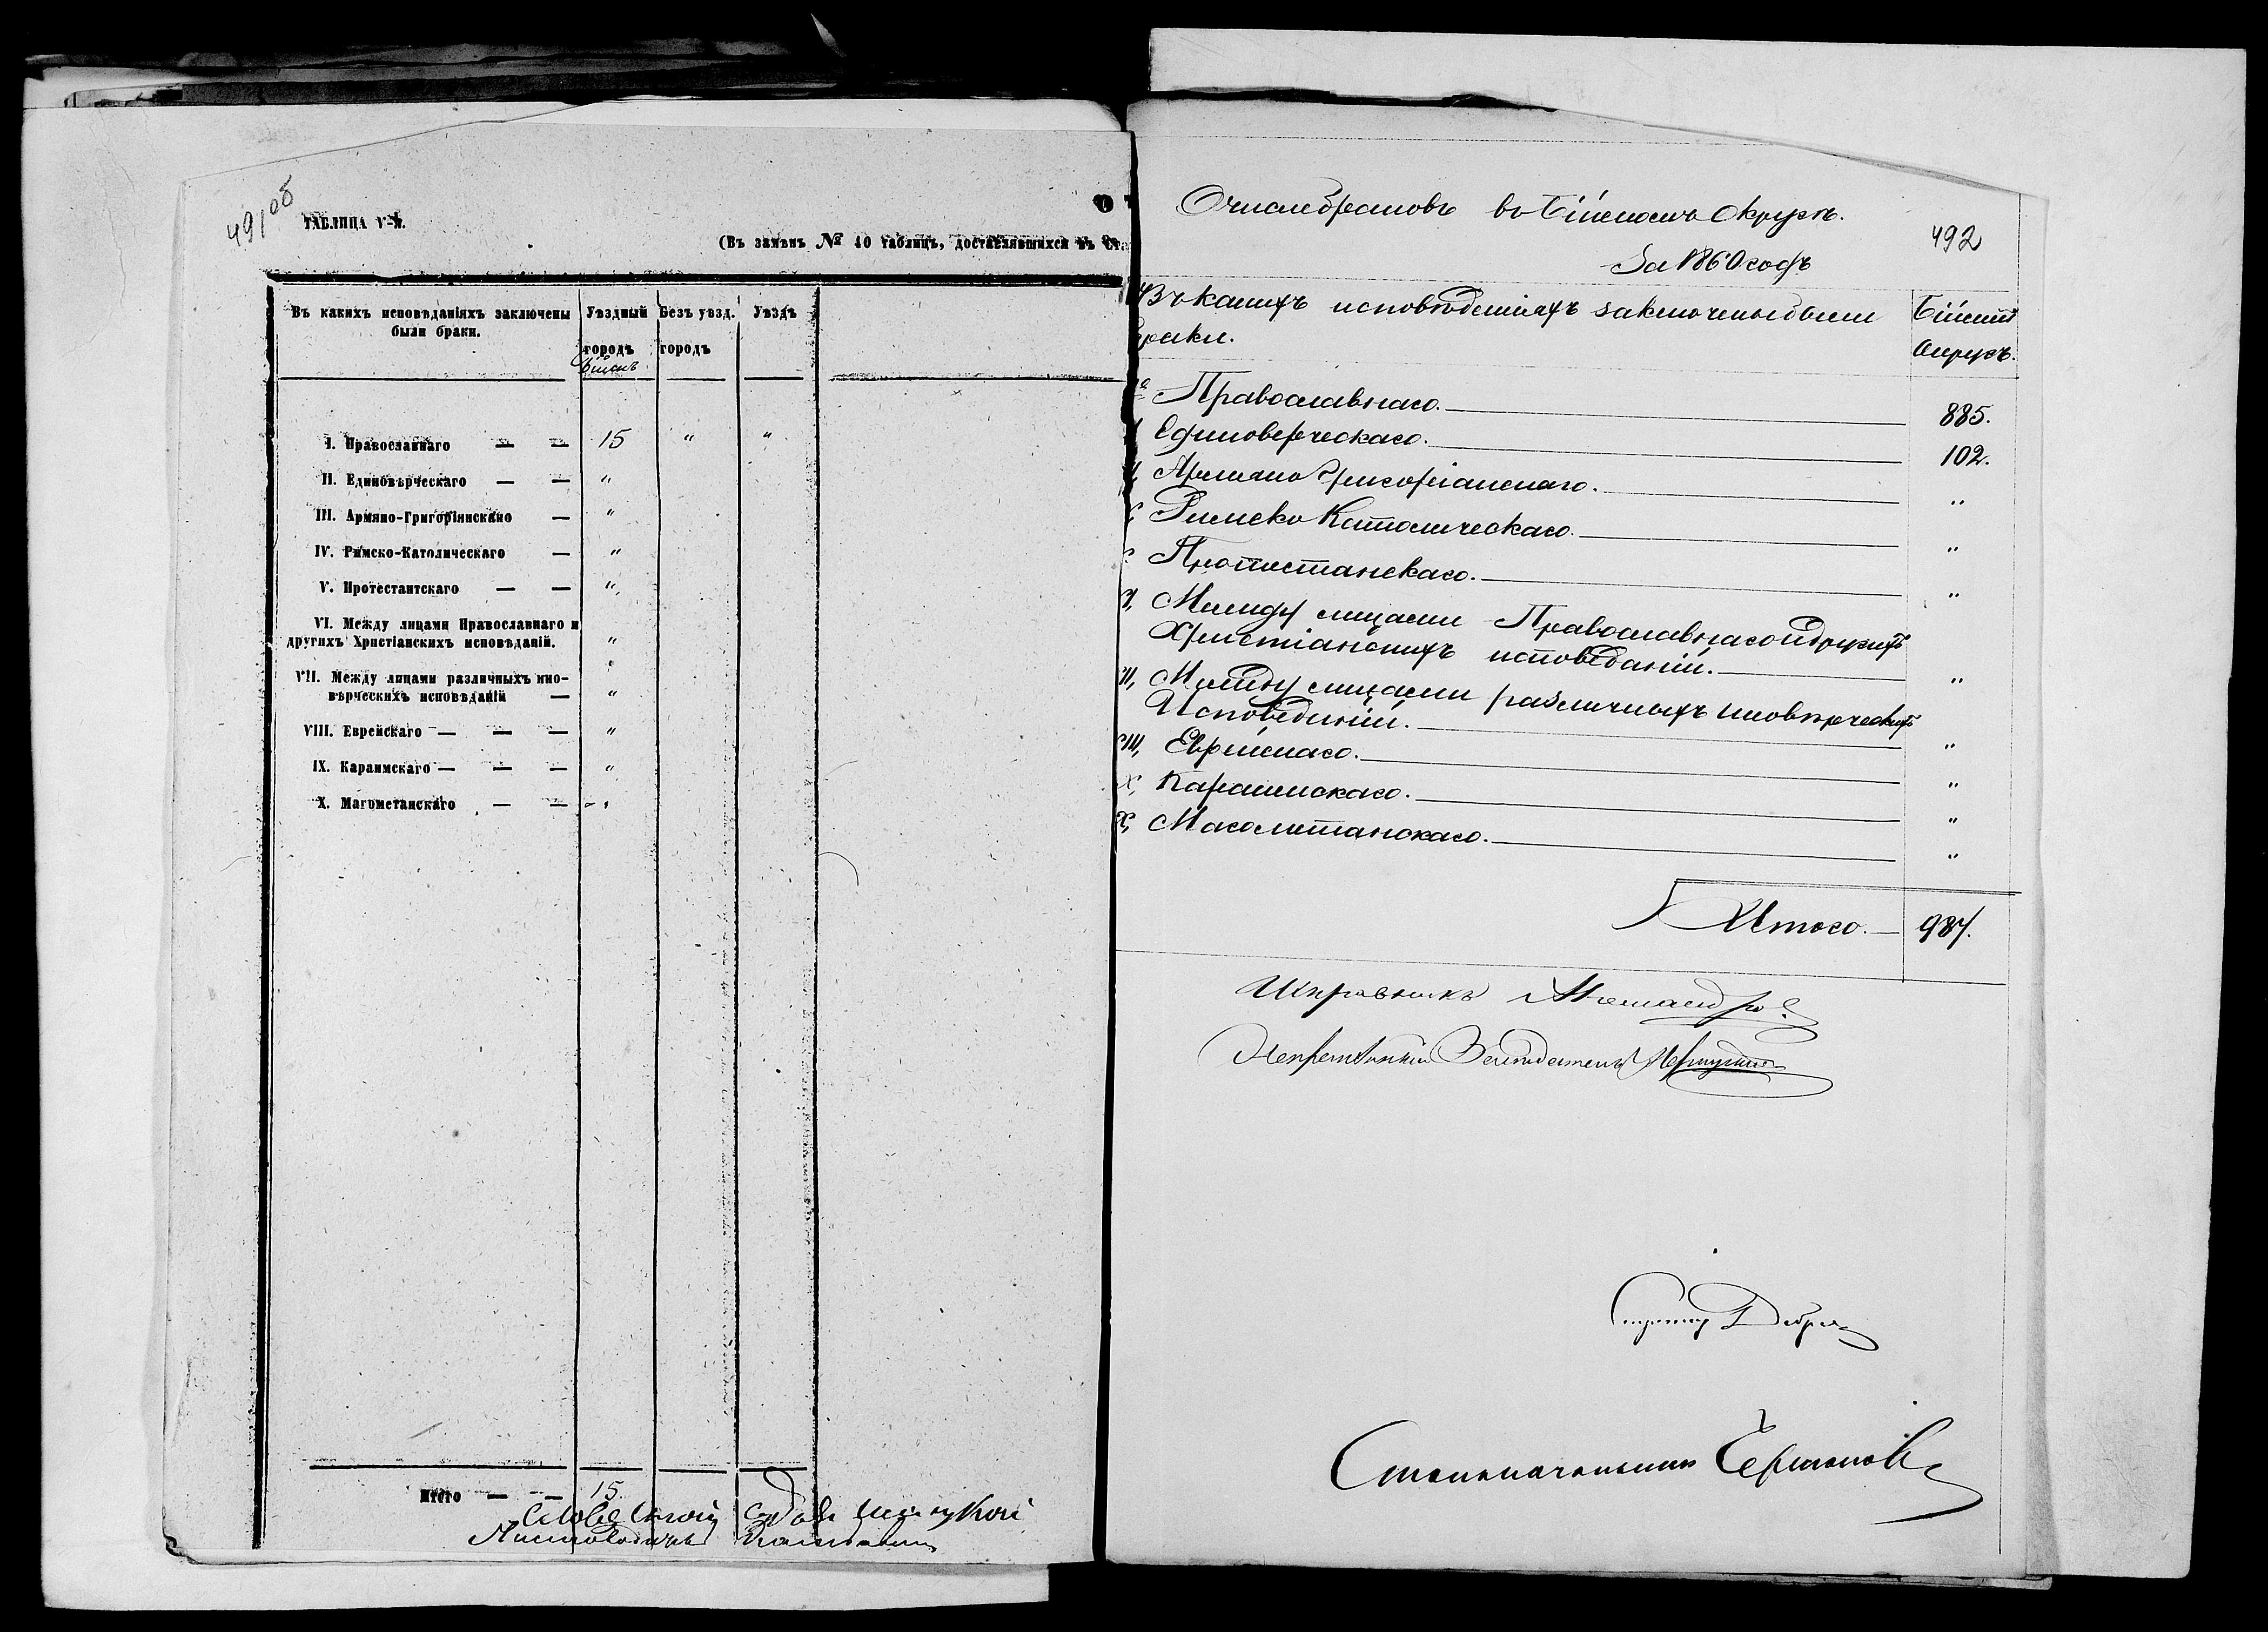 491 об
ТАБЛИЦА V-я.
(Въ замѣнъ № 10 таблицъ, доставлявшихся въ Ста
Въ какихъ исповѣданіяхъ заключены были браки.
Уѣздный городъ Бійскъ
Безъ уѣзд. городъ
Уѣздъ
I. Православнаго — — 15 " "
II. Единовѣрческаго — — "
III. Армяно-Григоріянскаго — "
IV. Римско-Католическаго — "
V. Протестантскаго — — "
VI. Между лицами Православнаго и
другихъ Христіанскихъ исповѣданій. "
VII. Между лицами различныхъ ино-
вѣрческихъ исповѣданій — "
VIII. Еврейскаго — — — "
IX. Караимскаго — — — "
X. Магометанскаго — — "
Итого — — 15
Очислѣ браковъ въ Бійскомъ Округѣ.
За 1860 годъ
492
Въ какихъ исповѣданіяхъ заключены были
браки.
Бійскій
Округъ.
Православнаго. 885.
Единоверческаго. 102.
Армяно Григоріанскаго. "
Римско Католическаго. "
Протистанскаго. "
Между лицами Православнаго и другихъ
Христіанскихъ исповѣданій. "
Между лицами различныхъ иновѣрческихъ
Исповѣданій. "
Еврейскаго. "
Караимскаго. "
Магометанскаго. "
Итого. 987.
Исправникъ
Непремѣнный Засѣдатель
Столоначальникъ